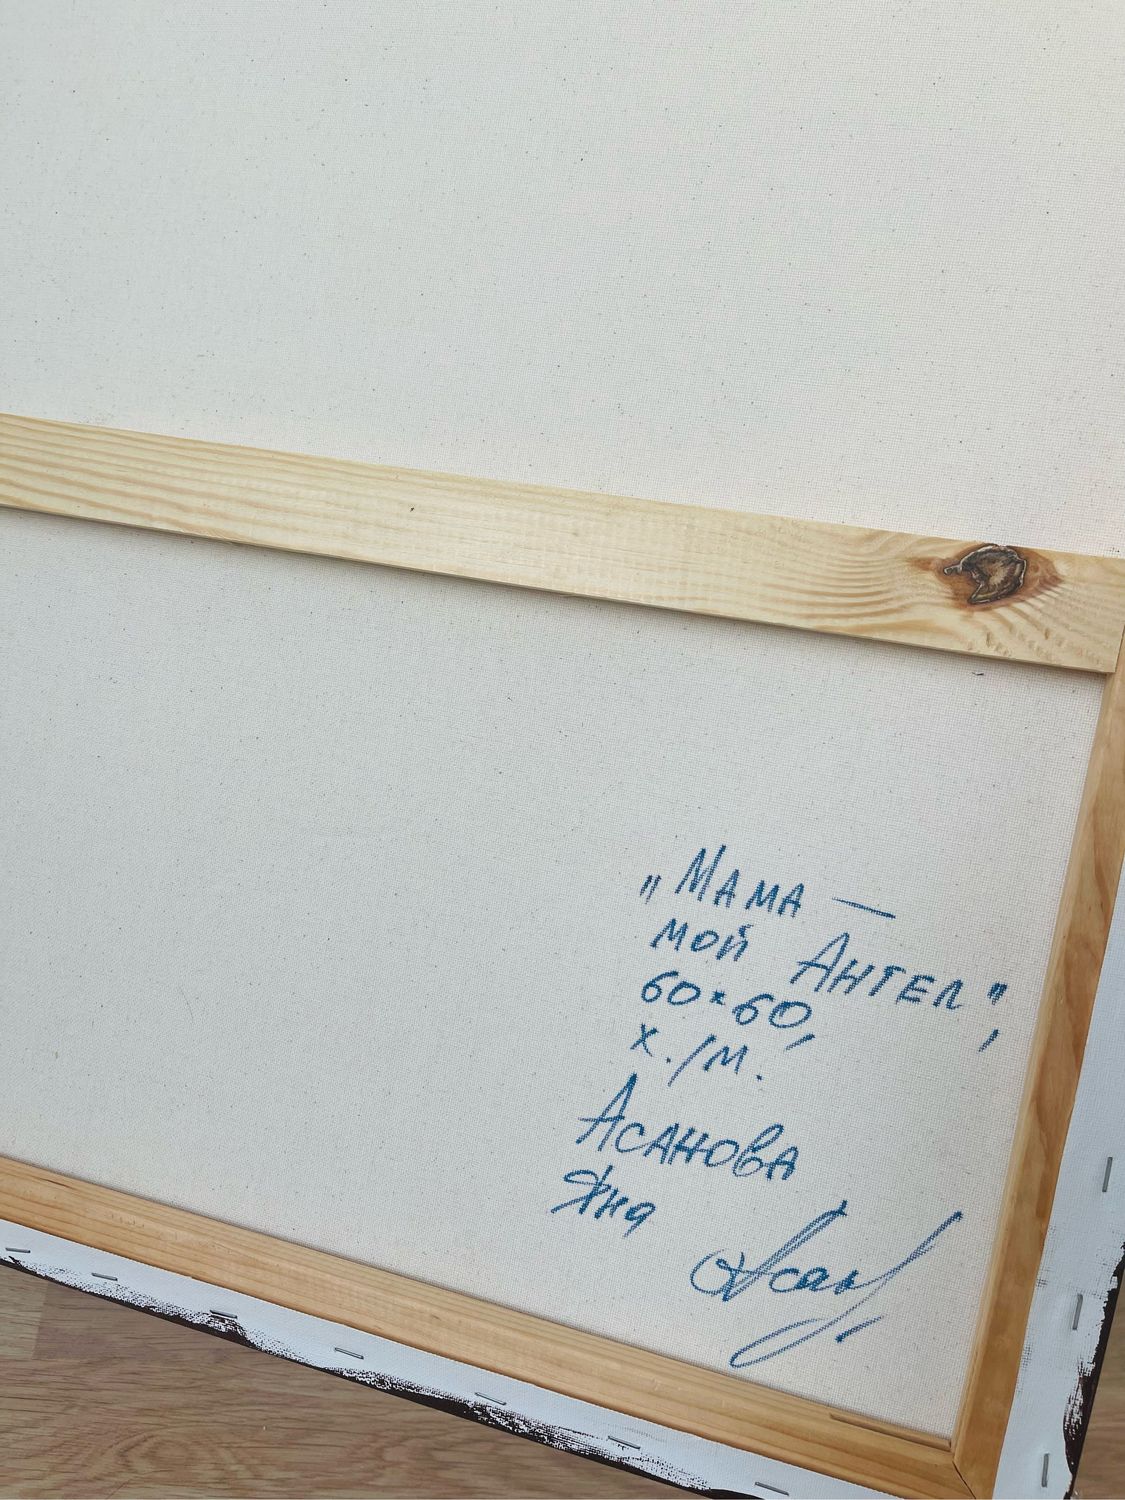 „Мама —
мой Ангел",
60×60,
х./м.
Асанова
Яна
Асан